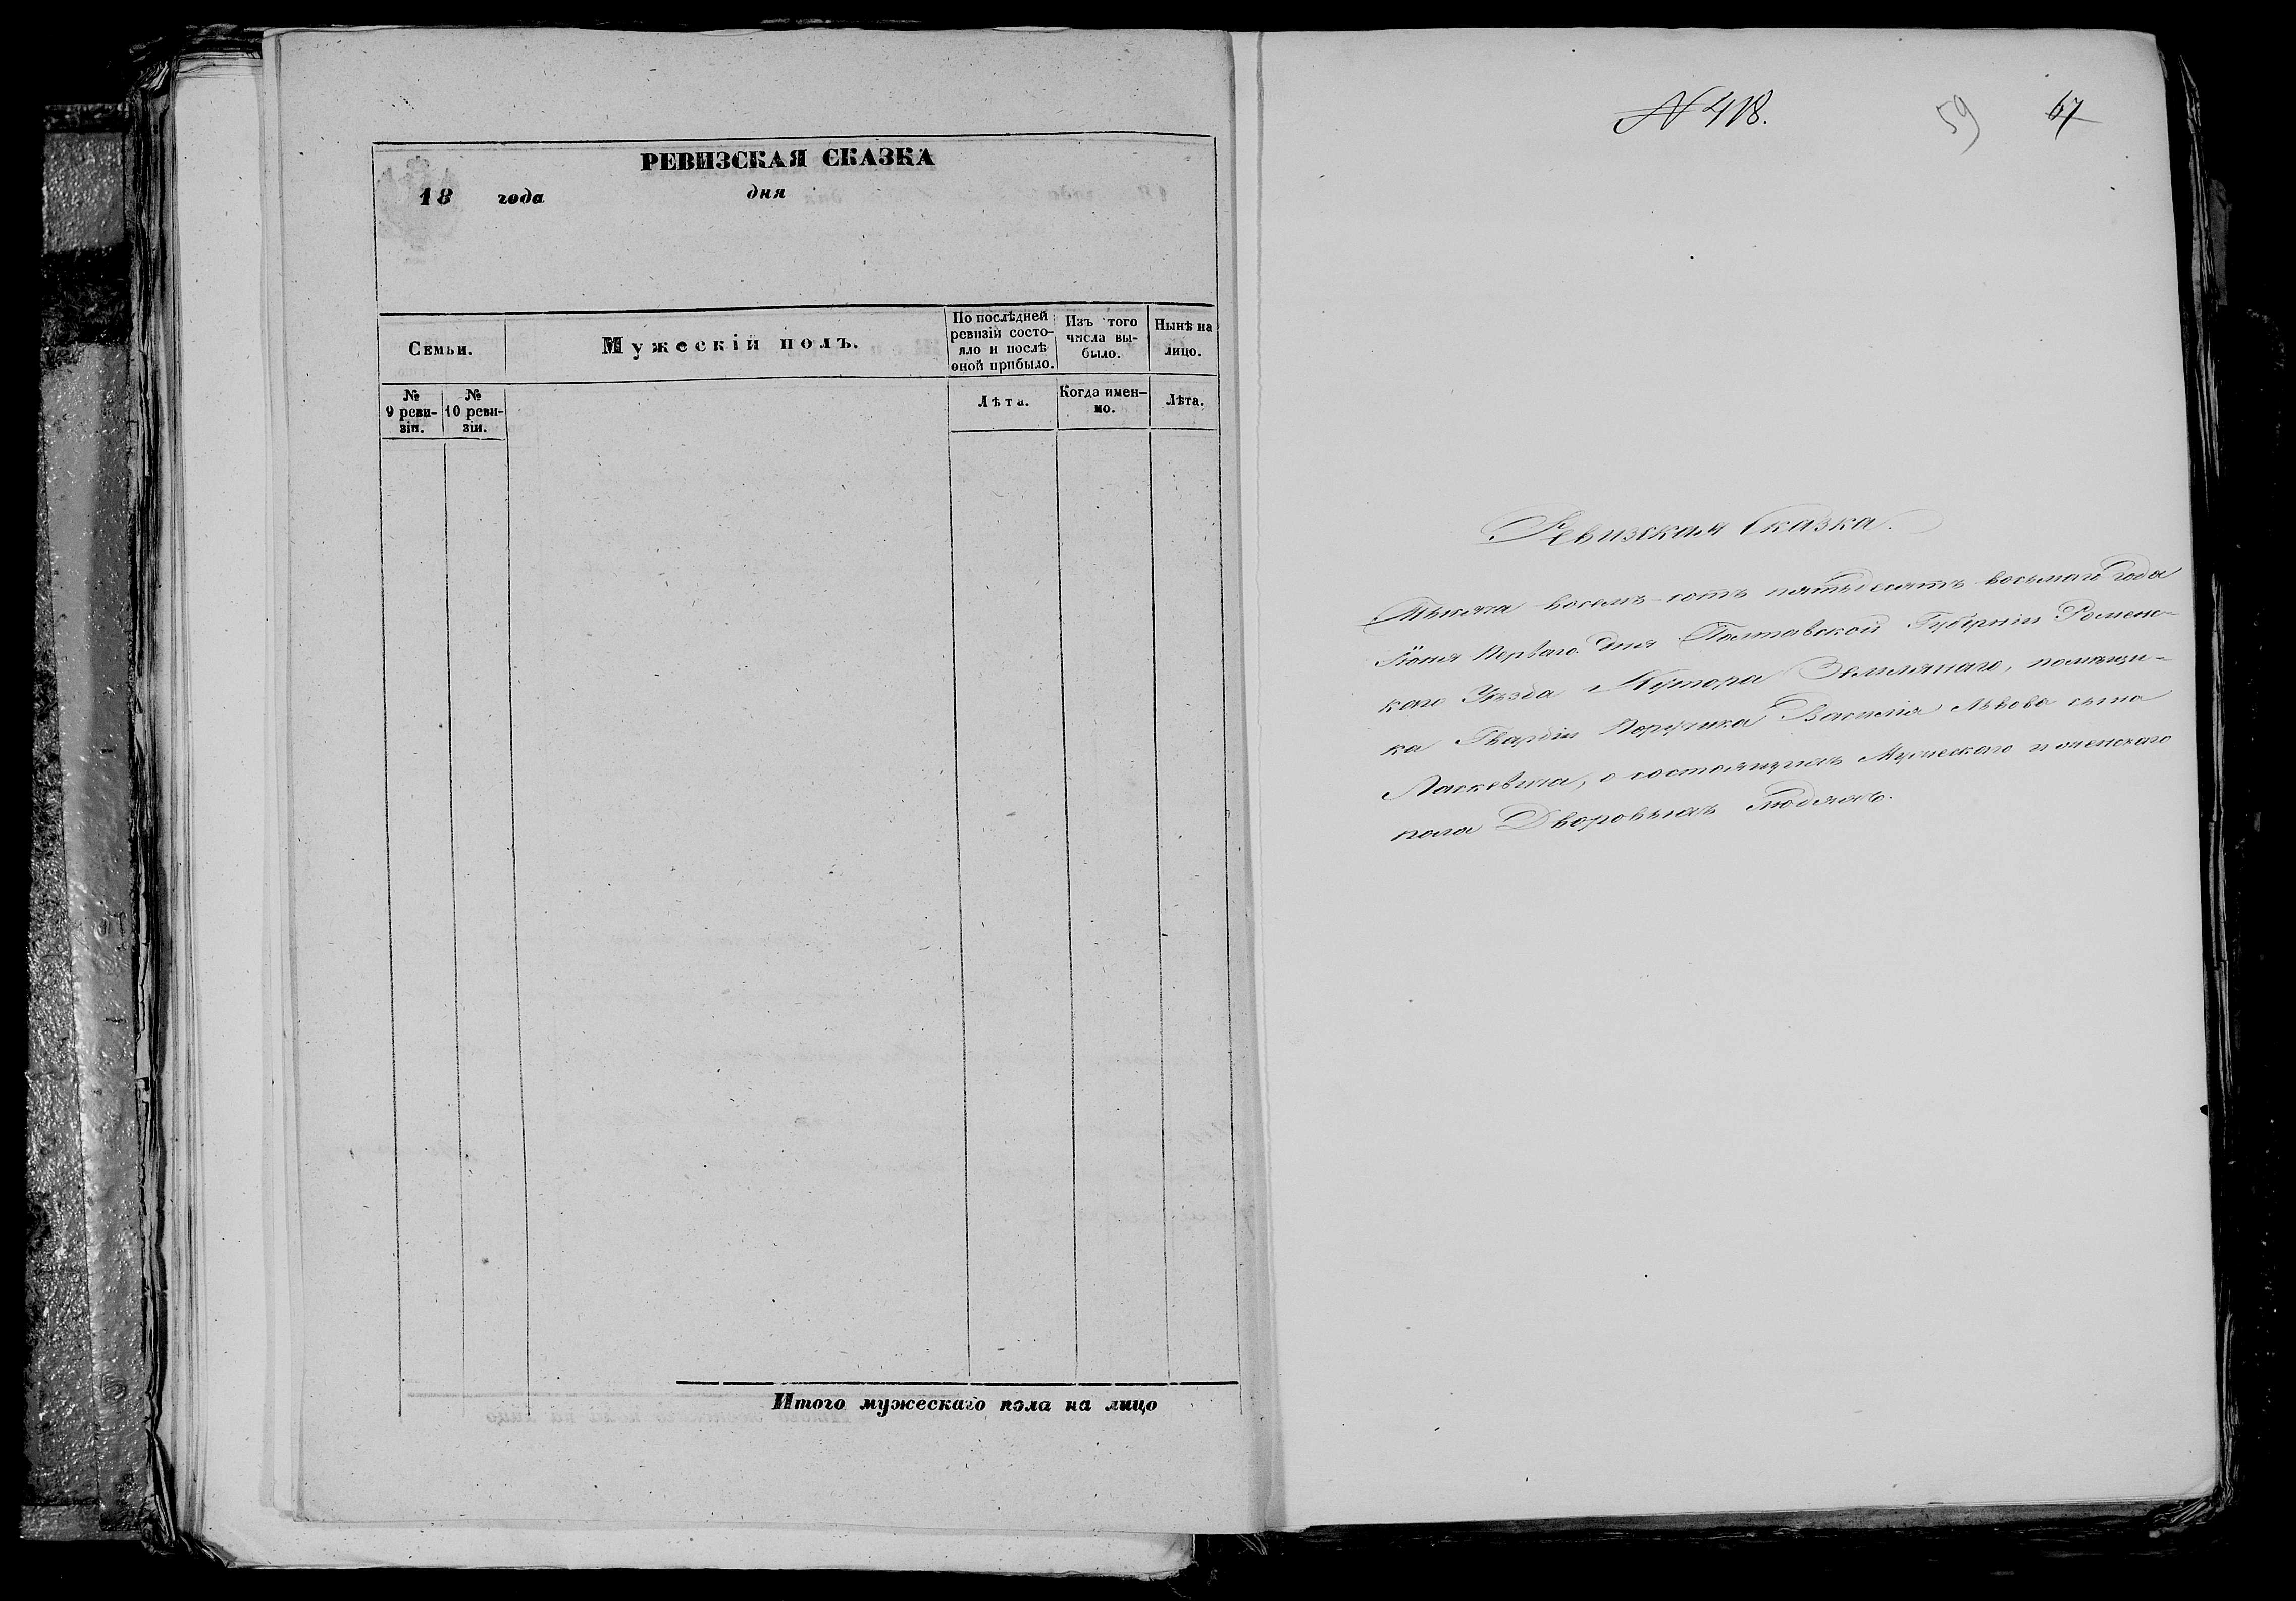 РЕВИЗСКАЯ СКАЗКА
18 года дня
Семьи.
Мужескій полъ.
По послѣдней
ревизіи состо-
яло и послѣ
оной прибыло.
Изъ того
числа вы-
было.
Нынѣ на
лицо.
№
9 реви-
зіи.
№
10 реви-
зіи.
Лѣта.
Когда имен-
но.
Лѣта.
Итого мужескаго пола на лицо
N 418.
59
67
Ревизская Сказка.
Тысяча восемь сотъ пятьдесятъ восьмаго года
Іюня Перваго дня Полтавской Губерніи Роменс-
каго Уѣзда Хутора Землянаго, помѣщи-
ка Гвардіи Поручика Василія Львова сына
Паскевича, о состоящихъ Мужескаго и женскаго
пола Дворовыхъ Людяхъ.